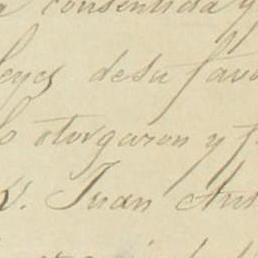 consentida y
leyes de su favo
lo otorgaron y f
D. Juan Ant